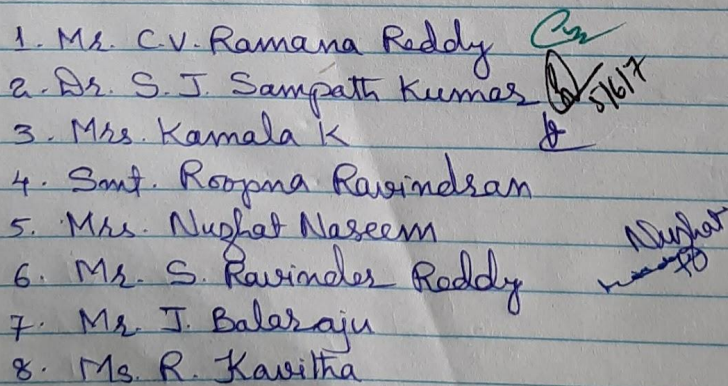 1. Mr. C.V. Ramana Reddy
2. Dr. S. J. Sampath Kumar 5/6/7
3. Mrs. Kamala K
4. Smt. Roopma Ravindran
5. Mrs. Nuzhat Naseem Nuzhat
6. Mr. S. Ravinder Reddy
7. Mr. J. Balaraju
8. Ms. R. Kavitha